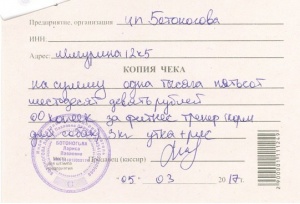 Предприятие, организация ип Ботоносова
ИНН
Адрес: 12к5
КОПИЯ ЧЕКА
на сумму одна тысяча пятьсот
шестьдесят девять рублей
00 копеек за фитнес тренер корм
для собаки 3кг утка+рис
Продавец (кассир)
"05" 03 2017г.